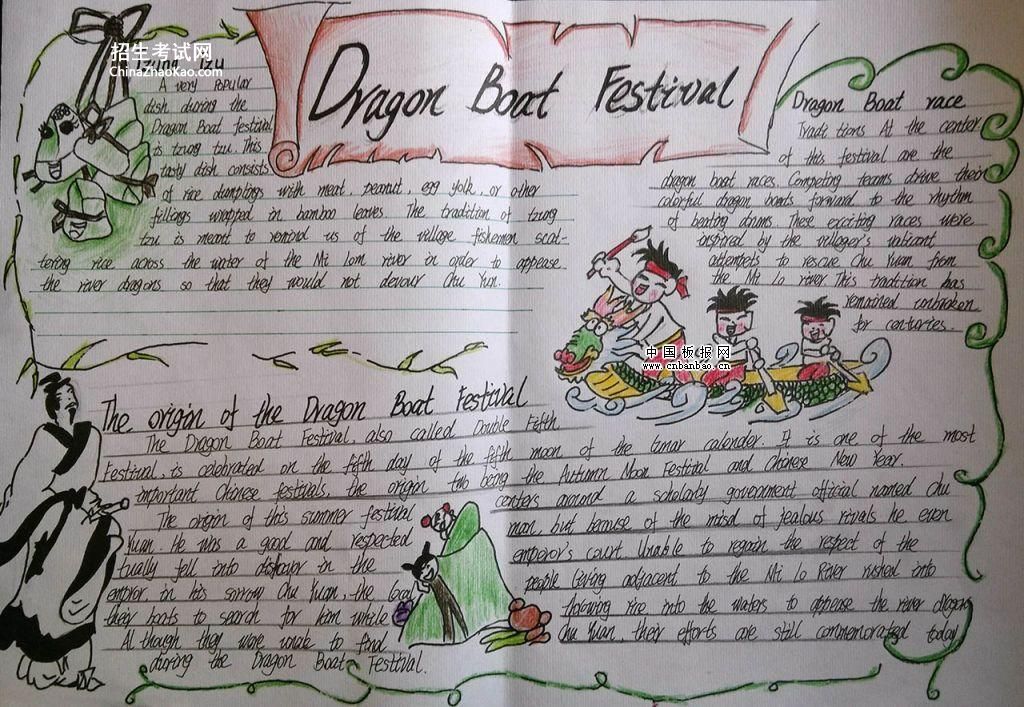 招生考试网
ChinaZhaoKao.com
Tzung Tzu
A very popular
dish during the
Dragon Boat festival
is tzung tzu. This
tasty dish consists
of rice dumplings with meat, peanut, egg yolk, or other
fillings wrapped in bamboo leaves. The tradition of tzung
tzu is meant to remind us of the village fishermen scat-
tering rice across the water of the Mi Lom river in order to appease
the river dragons so that they would not devour Chu Yun.
Dragon Boat Festival
Dragon Boat race
Traditions At the center
of this festival are the
dragon boat races. Competing teams drive their
colorful dragon boats forward to the rhythm
of beating drums. These exciting races were
inspired by the villager's valicant
attempts to rescue Chu Yuan from
the Mi Lo river. This tradition has
remained unbroken
for centuries.
中国板报网
www.cnbanbao.cn
The origin of the Dragon Boat Festival
The Dragon Boat Festival, also called Double Fifth
Festival, is celebrated on the fifth day of the fifth moon of the lunar calender. It is one of the most
important Chinese festivals, the origin two being the Autumn Moon Festival and Chinese New Year.
The origin of this summer festival centers around a scholarly government official named Chu
Yuan. He was a good and respected man, but because of the misd of jealous rivals he even
tually fell into disfavor in the emperor's court. Unable to regain the respect of the
empror in his sorrow Chu Yuan, the local people living adjacent to the Mi Lo River rushed into
their boats to search for him while throwing rice into the waters to appease the river dragons
Al though they were unale to find Chu Yuan, their efforts are still commemorated today
during the Dragon Boat Festival.